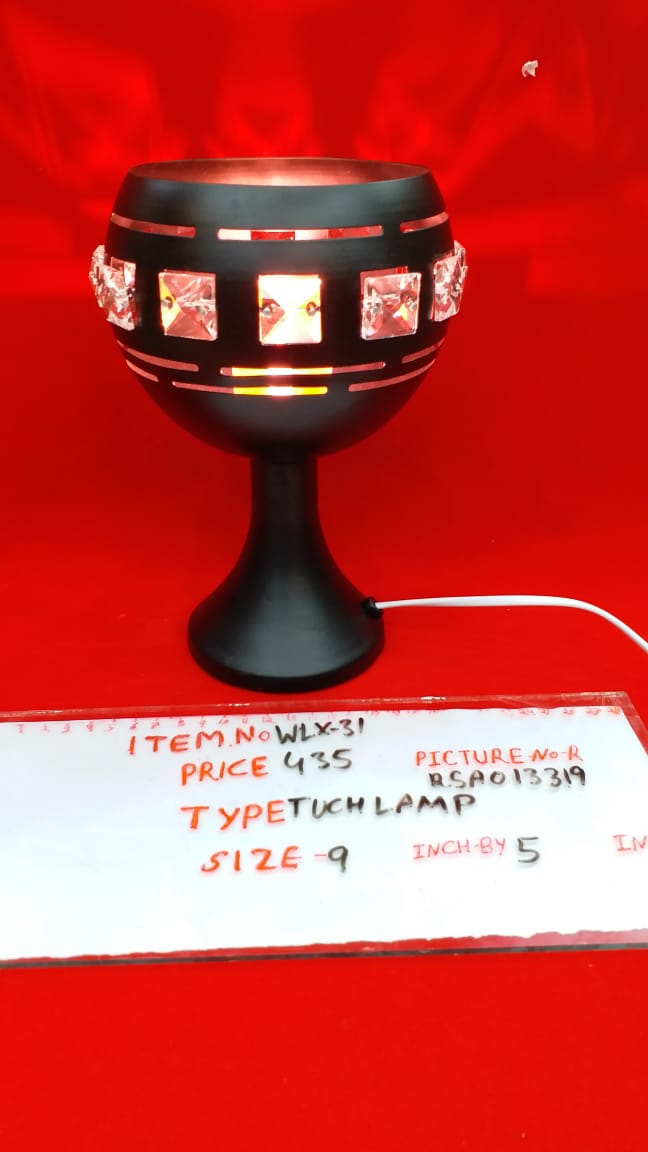 ITEM.No WLX-31
PRICE 435
PICTURE-No-R
RSA013319
TYPE TUCH LAMP
SIZE-9 INCH-BY 5 IN